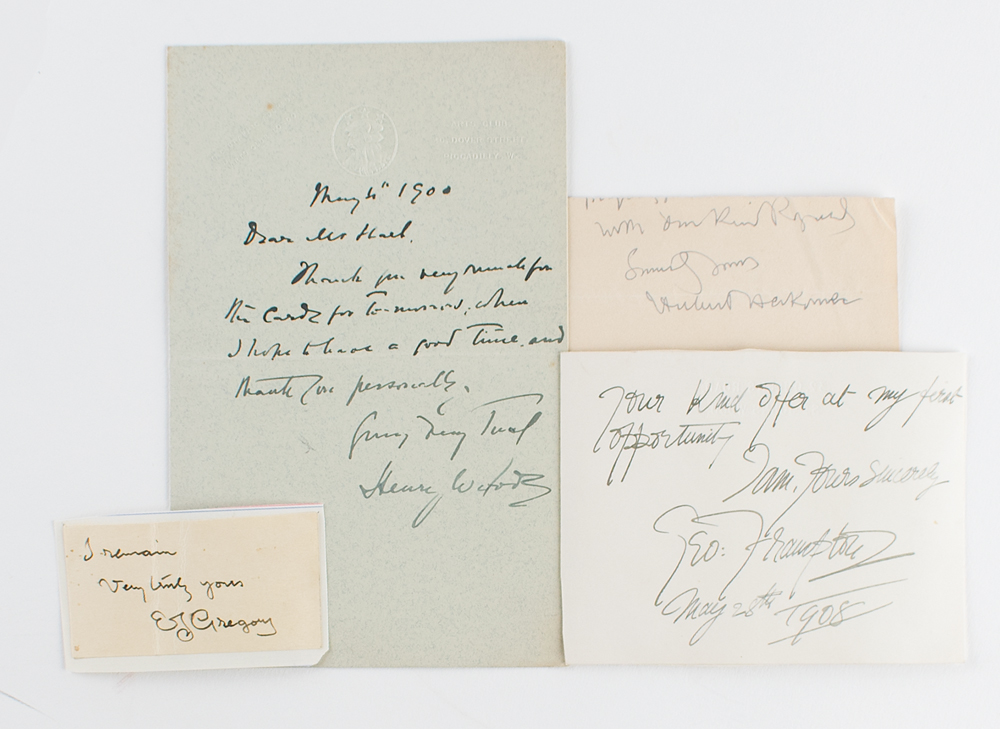 May 4th 1900
Dear Mr
Thank you very much for
the Cards for To-morrow, when
I hope to have a good Time, and
thank you personally.
Yours Very Truly
Henry Woods
with our Kind Regards
Sincerely Yours
Hubert Herkomer
Your Kind Offer at my first
opportunity
I am, Yours Sincerely
Geo: Frampton
May 28th 1908
I remain
Very truly yours
EJ Gregory